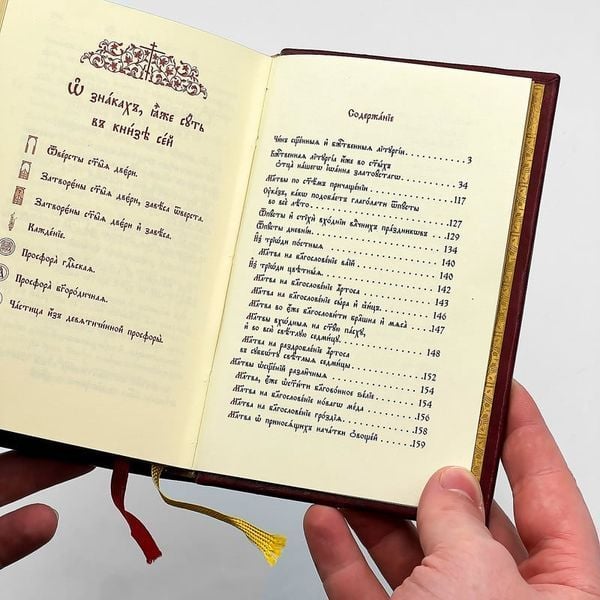 Ѽ знáкахъ, ꙗ҆́же сꙋ́ть
въ кни́зѣ се́й
Ѿвє́рсты ст҃ы́ѧ двє́ри.
Затворє́ны ст҃ы́ѧ двє́ри, завѣ́са ѿвє́рста.
Затворє́ны ст҃ы́ѧ двє́ри и҆ завѣ́са.
Кажде́нїе.
Просфора̀ гдⷭ҇ьскаѧ.
Просфора̀ бг҃оро́дичнаѧ.
Части́ца и҆зъ девѧтичи́нной просфоры̀.
Содержа́нїе
Чи́нъ сщ҃е́нныѧ и҆ бж҃е́ственныѧ літꙋргі́и 3
Бж҃е́ственнаѧ літꙋргі́а и҆́же во ст҃ы́хъ
ѻ҆тца̀ на́шегѡ і҆ѡа́нна златоꙋ́стагѡ 34
Мл҃твы по ст҃ѣ́мъ причаще́нїи 117
Оу҆ка́зъ, ка́кѡ подоба́етъ глаго́лати ѿпꙋ́сты
во всѐ лѣ́то 127
Ѿпꙋ́сты и҆ стїхѝ вхо́днїи влⷣчнихъ пра́здникѡвъ 129
Ѿпꙋ́сты дне́внїи 134
И҆з̾ трїѡ́ди по́стныѧ 140
Мл҃тва на блгⷭ҇ове́нїе ва́їй 140
И҆з̾ трїѡ́ди цвѣ́тныѧ 142
Мл҃тва на блгⷭ҇ове́нїе а҆́ртоса 143
Мл҃тва на блгⷭ҇ове́нїе сы́ра и҆ ꙗ҆и́цъ 146
Мл҃тва во є҆́же блгⷭ҇ови́ти бра̑шна и҆ мѧса̀ 147
Мл҃твы вхѡ́дныѧ на ст҃ꙋ́ю па́схꙋ,
и҆ во всѐ свѣ́тлꙋю седми́цꙋ 148
Мл҃тва на раздробле́нїе а҆́ртоса
въ сꙋббѡ́тꙋ свѣ́тлыѧ седми́цы 152
Мл҃твы ѡ҆сщ҃е́нїй разли́чныѧ 154
Мл҃тва, є҆́же ѡ҆ст҃и́ти благово́нное ѕе́лїе 154
Мл҃тва на блгⷭ҇ове́нїе но́вагѡ ме́да 156
Мл҃тва на блгⷭ҇ове́нїе гро́здїѧ 158
Мл҃тва ѡ҆ приносѧ́щихъ нача́тки ѻ҆воще́й 159